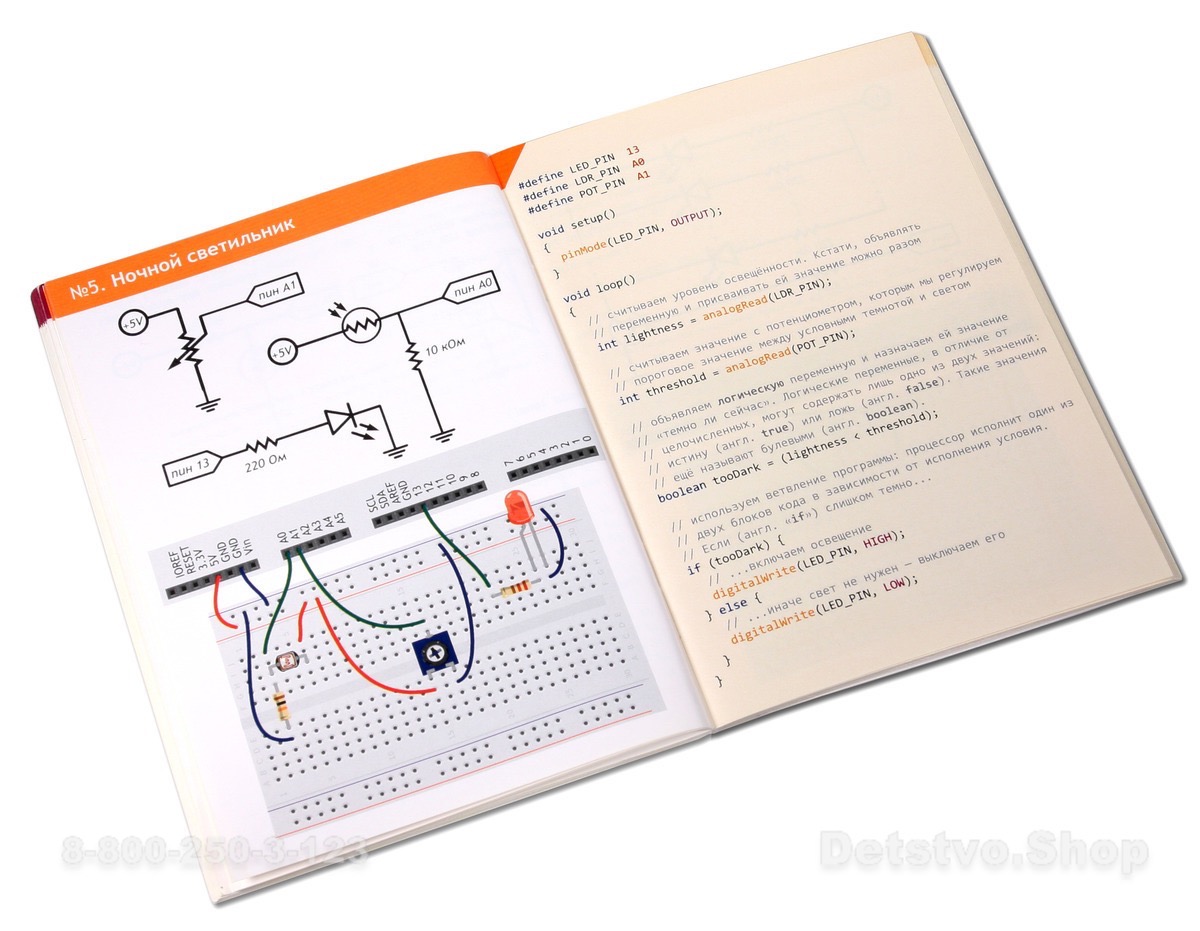 №5. Ночной светильник
+5V
пин A1
+5V
пин A0
10 кОм
пин 13
220 Ом
IOREF
RESET
3.3V
5V
GND
GND
Vin
A0
A1
A2
A3
A4
A5
SCL
SDA
AREF
GND
13
12
11
10
9
8
7
6
5
4
3
2
1
0
#define LED_PIN 13
#define LDR_PIN A0
#define POT_PIN A1
void setup()
{
pinMode(LED_PIN, OUTPUT);
}
void loop()
{
// считываем уровень освещённости. Кстати, объявлять
// переменную и присваивать ей значение можно разом
int lightness = analogRead(LDR_PIN);
// считываем значение с потенциометром, которым мы регулируем
// пороговое значение между условными темнотой и светом
int threshold = analogRead(POT_PIN);
// объявляем логическую переменную и назначаем ей значение
// «темно ли сейчас». Логические переменные, в отличие от
// целочисленных, могут содержать лишь одно из двух значений:
// истину (англ. true) или ложь (англ. false). Такие значения
// ещё называют булевыми (англ. boolean).
boolean tooDark = (lightness < threshold);
// используем ветвление программы: процессор исполнит один из
// двух блоков кода в зависимости от исполнения условия.
// Если (англ. «if») слишком темно...
if (tooDark) {
// ...включаем освещение
digitalWrite(LED_PIN, HIGH);
} else {
// ...иначе свет не нужен — выключаем его
digitalWrite(LED_PIN, LOW);
}
}
8-800-250-3-123
Detstvo.Shop